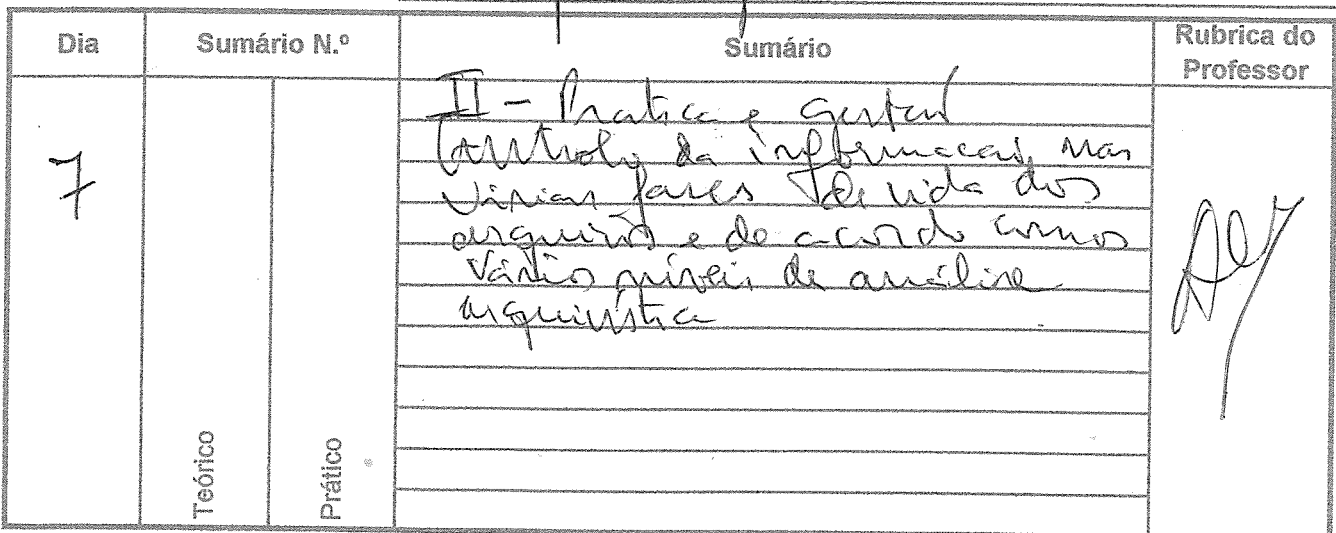 Dia
Sumário N.º
Sumário
Rubrica do
Professor
7
II - Pratica e Gestão
Controlo da informacao nas
várias fases de vida dos
arquivos e de acordo com os
vários níveis de análise
arquivística
Teórico
Prático